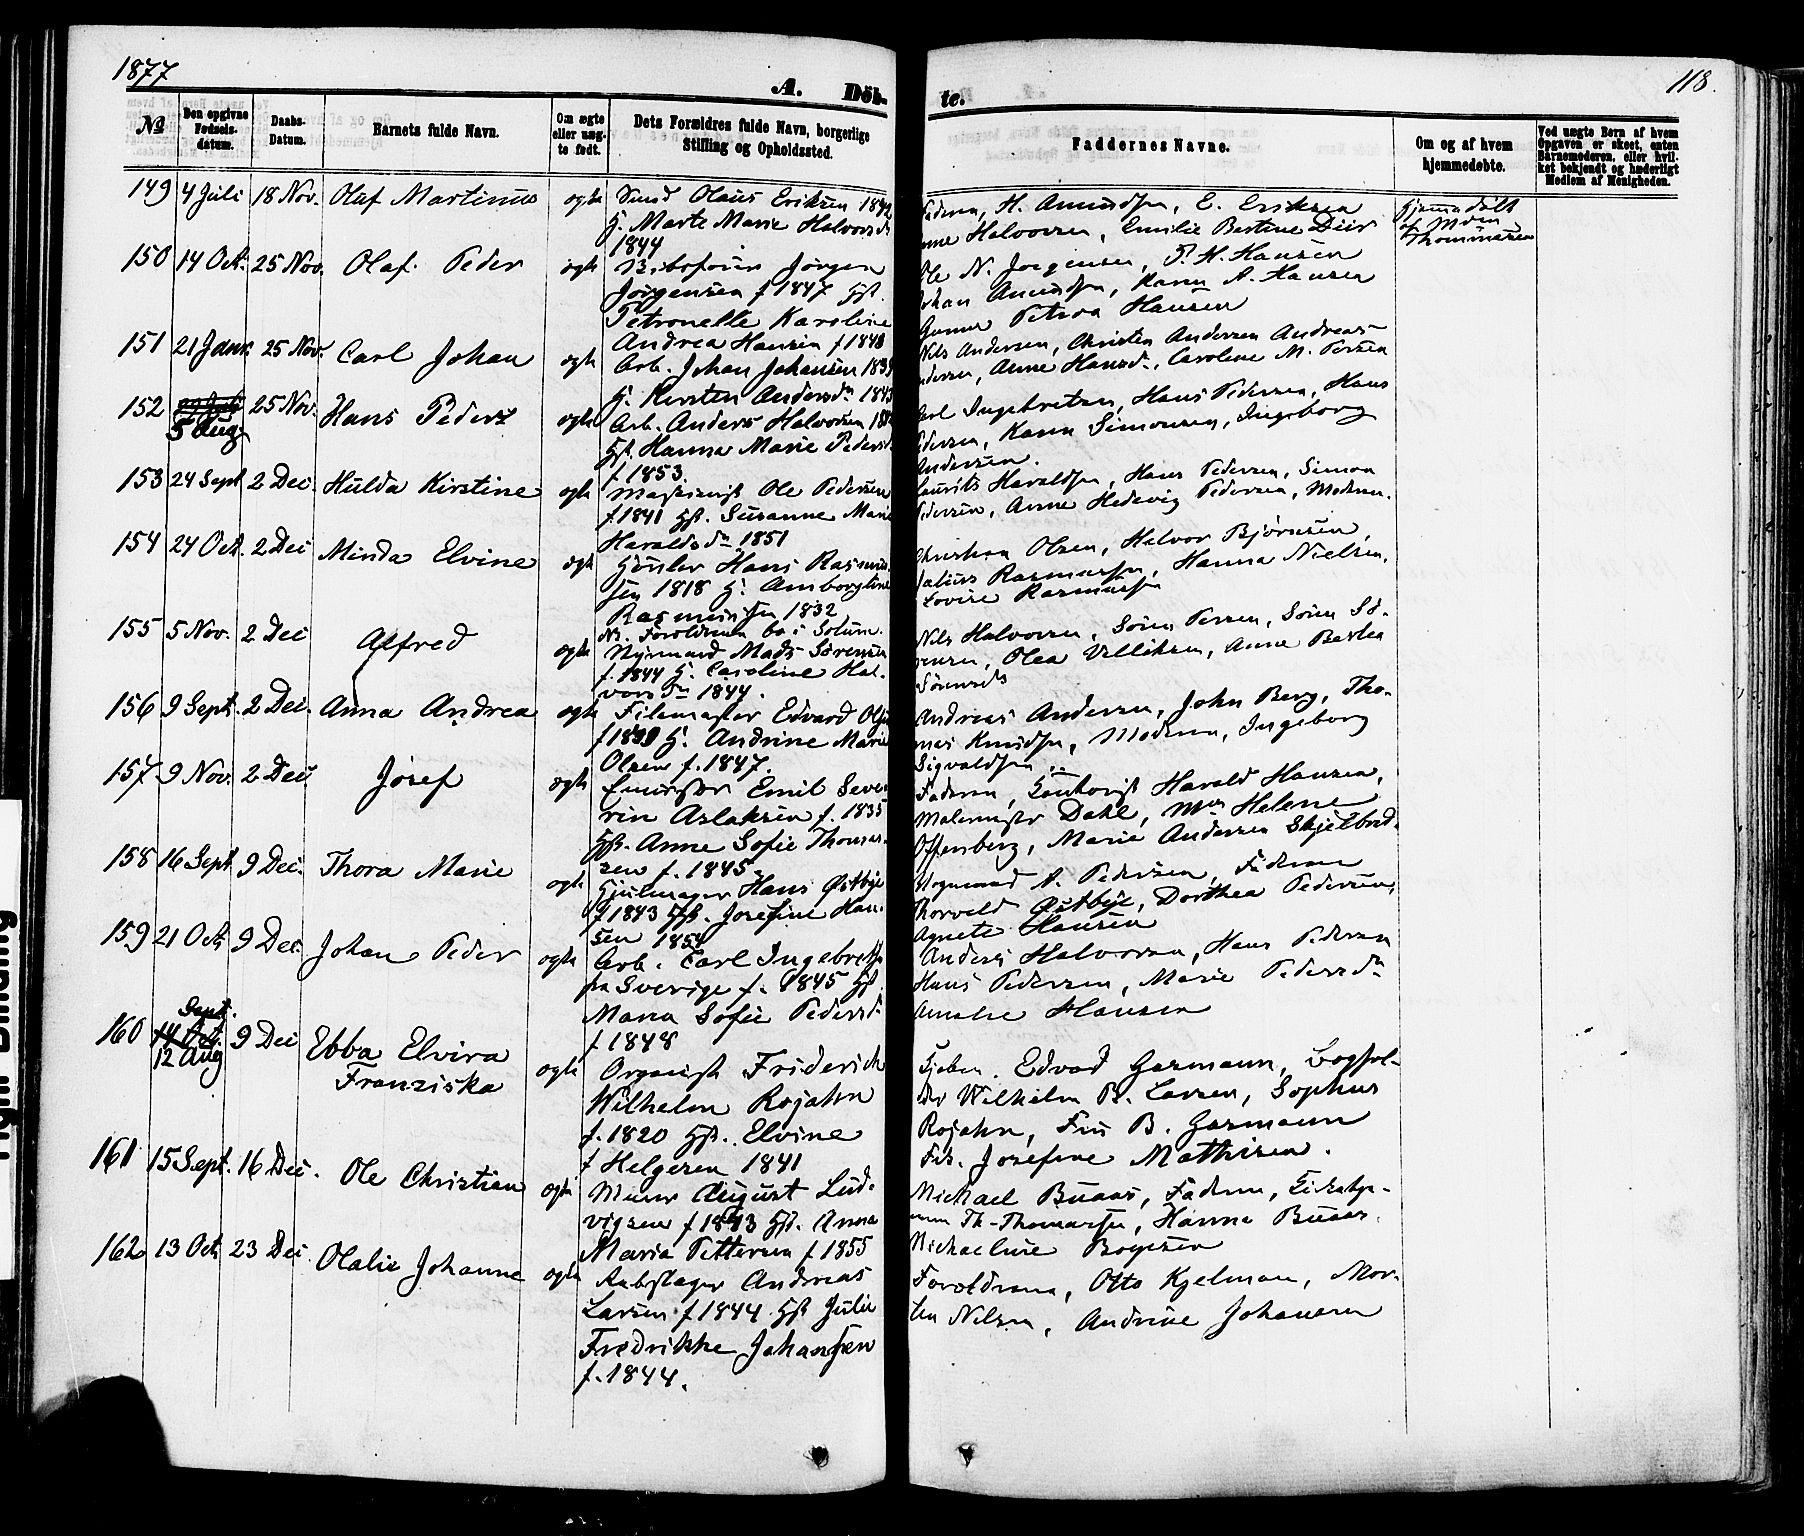 1877
118.
A. Döb-
te.
No
Den opgivne Fødselsdatum.
Daabs-Datum.
Barnets fulde Navn.
Om ægte eller uægte født.
Dets Forældres fulde Navn, borgerlige Stilling og Opholdssted.
Faddernes Navne.
Om og af hvem hjemmedøbte.
Ved uægte Børn af hvem Opgaven er skeet, enten Barnemoderen, eller hvilket bekjendt og hæderligt Medlem af Menigheden.
149 4 Juli 18 Nov. Olaf Martinus ægte
Smed Olaus Eriksen 1842
G. Marte Marie Halvorsdr
1844
Faderen, H. Amundsen, E. Eriksen
Halvorsen, Emilie Bertine
Hjemmedøbt
af Moen
Thommesen
150 14 Oct. 25 Nov. Olaf Peder ægte
Jørgen
Jørgensen f 1847 Hst.
Petronelle Karoline
Andrea Hansen f 1848
Ole N. Jørgensen, P. H. Hansen
Johan Amundsen, Karen A. Hansen
Gunner Petrea Hansen
151 21 Janr. 25 Nov. Carl Johan ægte
Arb. Johan Johansen 1839
G. Kirsten Andersdr 1843
Nils Andersen, Christen Andersen Andreas
Andersen, Anne Hansd., Caroline M. Persen
152 29 Juli 5 Aug. 25 Nov. Hans Peder ægte
Arb. Anders Halvorsen
Hst. Hanna Marie Pedersd
f 1853.
Carl Ingebretsen, Hans Pedersen, Hans
Pedersen, Karen Simonsen, Ingeborg
Andersen.
153 24 Sept 2 Dec. Hulda Kirstine ægte
Ole Pedersen
f. 1841 Hst. Susanne Marie
Haraldsdr 1851
Laurits Haraldsen, Hans Pedersen, Simon
Pedersen, Anne Hedevig Pedersen, Moderen.
154 24 Oct. 2 Dec Minda Elvine ægte
Hans Rasmus
sen 1818 G.
Rasmussen 1832
NB. Forældrene bo i Solum.
Christian Olsen, Halvor Bjørnsen,
Julius Rasmussen, Hanna Nielsen,
Lovise Rasmussen
155 5 Nov. 2 Dec Alfred ægte
Styrmand Mads Sørensen
f. 1844 G. Caroline Hal-
vorsdr 1844.
Nils Halvorsen, Søren Persen, Søren Sø-
rensen, Olea Villiksen, Anne Bertea
Sørensds
156 9 Sept. 2 Dec. Anna Andrea ægte
Edvard Olsen
G. Andrine Marie
Olsen f. 1847.
Andreas Andersen, John Berg, Tho-
mas Knudsen, Moderen, Ingeborg
Sigvaldsen
157 9 Nov. 2 Dec. Josef ægte
Emil Seve-
rin Aslaksen f. 1835
Hst. Anne Sofie Thomas-
sen f. 1845.
Faderen, Harald Hansen,
Malermester Dahl, Helene
Offenberg, Marie Andersen Skjelbred
158 16 Sept. 9 Dec. Thora Marie ægte
Hjulmager Hans Østbye
f 1843 Hst. Josefine Han-
sen 1854
Vognmand A. Pedersen, Faderen
Thorvald Østbye, Dorthea Pedersen,
Agnete Hansen
159 21 Oct 9 Dec. Johan Peder ægte
Arb. Carl Ingebretsen
fra Sverige f. 1845 Hst.
Maria Sofie Pedersd.
f 1848
Anders Halvorsen, Hans Pedersen
Hans Pedersen, Marie Pedersdr
Amalie Hansen
160 14 Oct. Sept. 12 Aug 9 Dec Ebba Elvira
Franziska ægte
Organist Friderich
Wilhelm Rojahn
f. 1820 Hst. Elvine
f Helgesen 1841
Edvard Garmann, Boghol-
der Wilhelm B. Larsen, Sophus
Rojahn, B. Garmann
Josefine Mathisen.
161 15 Sept. 16 Dec. Ole Christian ægte
Murer August Lud-
vigsen f 1843 Hst. Anna
Maria Pettersen f 1855
Michael Buaas, Faderen,
Th. Thomassen, Hanna Buaas,
Michaeline Bøgesen
162 13 Oct. 23 Dec Olalie Johanne ægte
Andreas
Larsen f 1844 Hst Julie
Fredrikke Johansen
f. 1844.
Forældrene, Otto Kjelman, Mor-
ten Nilsen, Andrine Johansen